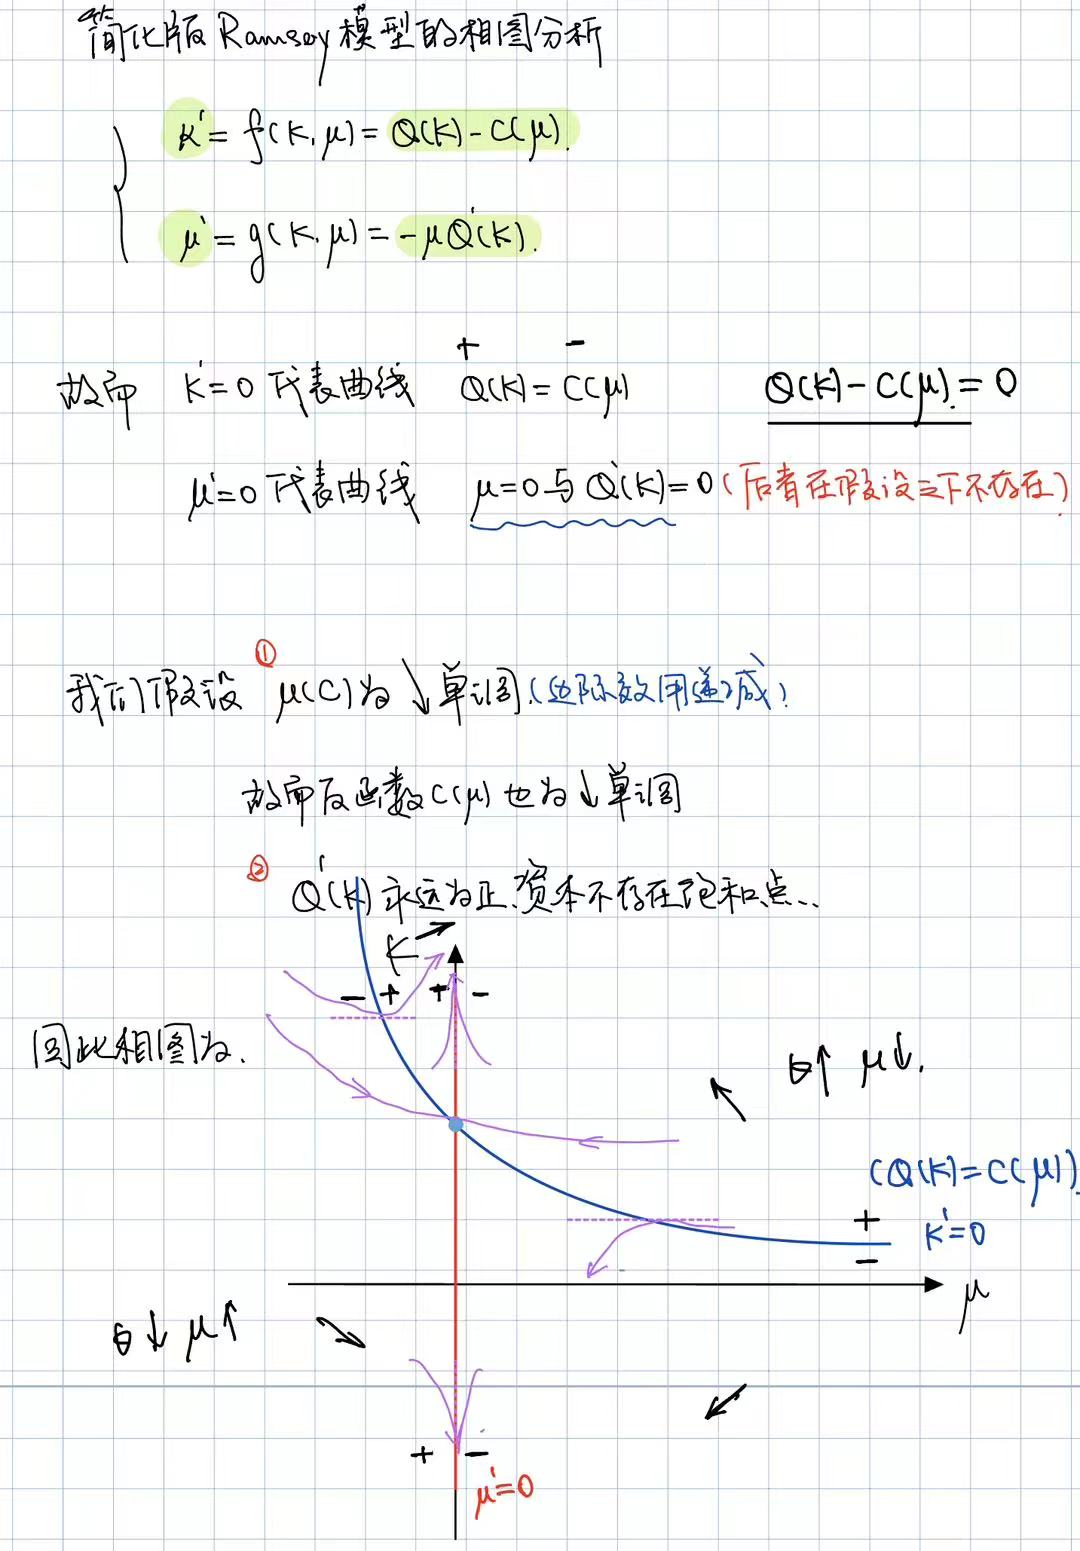 简化版 Ramsey 模型的相图分析
K' = f(K, μ) = Q(K) - C(μ).
μ' = g(K, μ) = -μQ'(K).
+ -
故而 K'=0 代表曲线 Q(K) = C(μ) Q(K) - C(μ) = 0
μ'=0 代表曲线 μ=0 与 Q'(K)=0 (后者在假设之下不存在)
我们假设 ① μ(C) 为 ↓ 单调 (边际效用递减)
故而反函数 C(μ) 也为 ↓ 单调
② Q'(K) 永远为正、资本不存在饱和点...
K
- + + -
因此相图为.
↑ μ↓.
(Q(K)=C(μ))
+
K'=0
-
μ
↓ μ↑
+ -
μ'=0